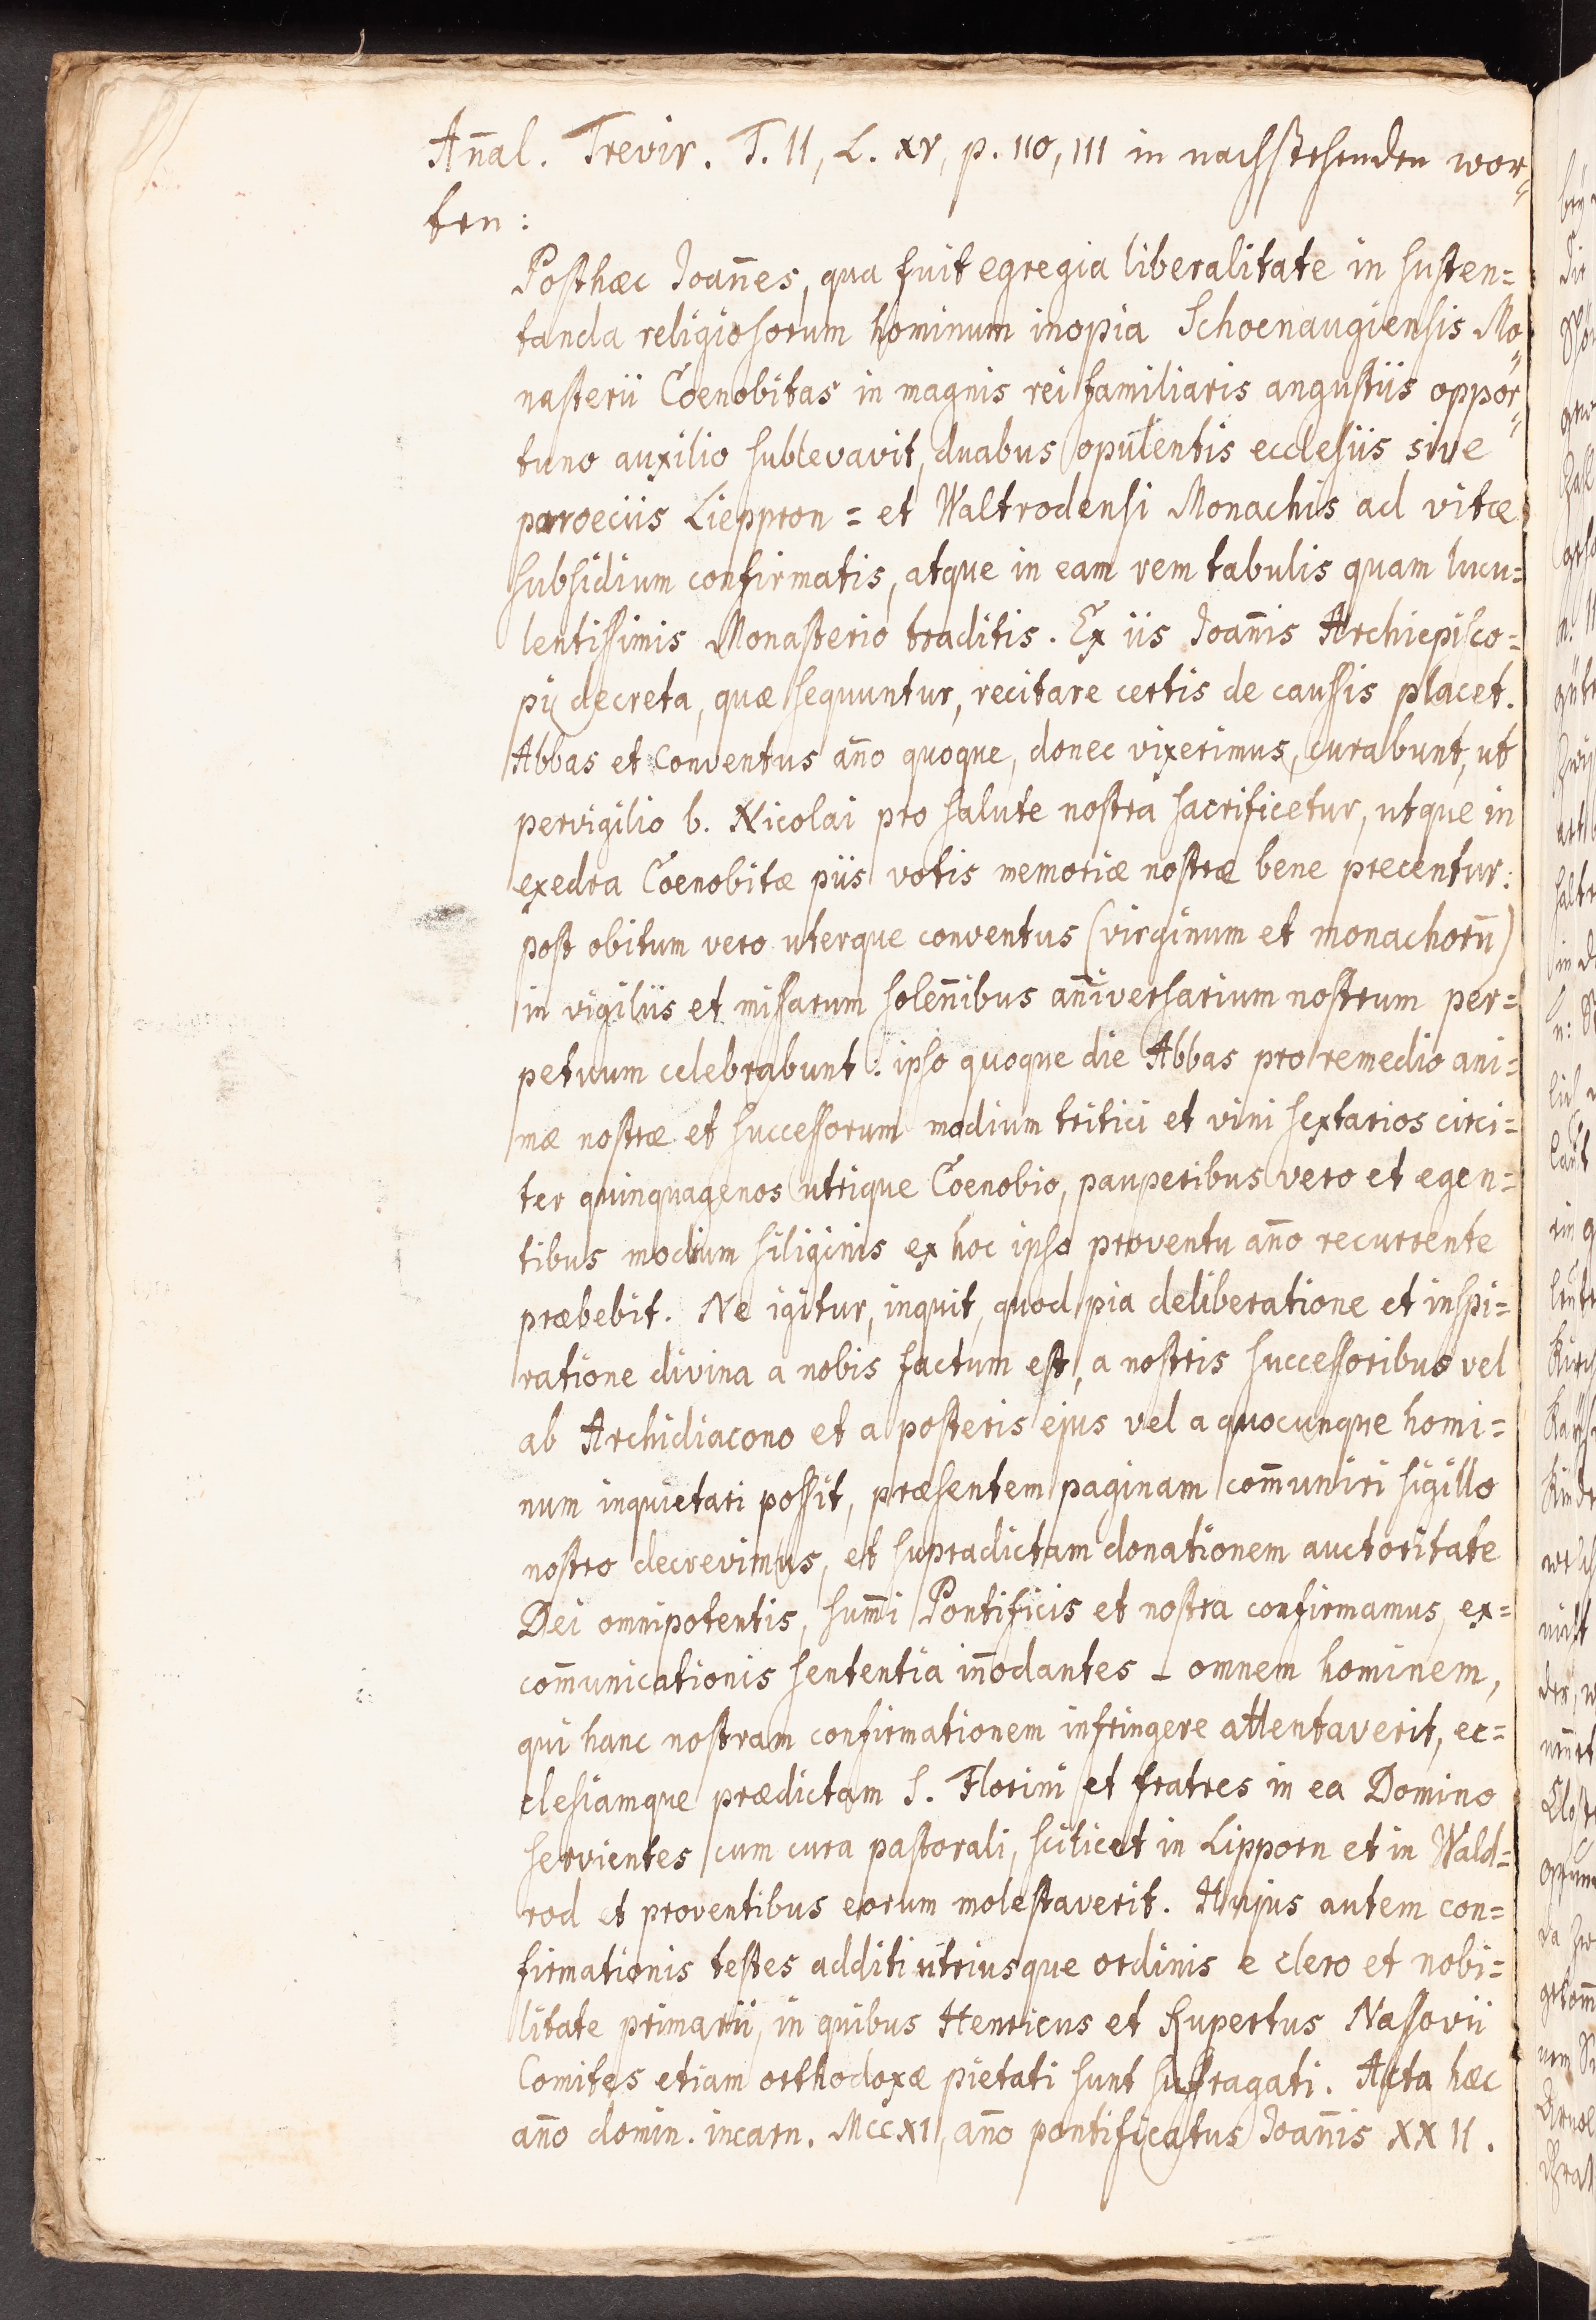 Añal. Trevir. T. II, L. XV, p. 110, 111 in nachstehenden wor=
ten:
Posthæc Joañes, qua fuit egregia liberalitate in susten=
tanda religiosorum hominum inopia Schoenaugiensis Mo=
nasterii Coenobitas in magnis rei familiaris angustiis oppor=
tuno auxilio sublevavit, duabus opulentis ecclesiis sive
paroeciis Lieppron = et Waltrodensi Monachis ad vitæ
subsidium confirmatis, atque in eam rem tabulis quam lucu=
lentissimis Monasterio traditis. Ex iis Joañis Archiepisco=
pi decreta, quæ sequuntur, recitare certis de caussis placet.
Abbas et Conventus año quoque, donec vixerimus, curabunt, ut
pervigilio b. Nicolai pro salute nostra sacrificetur, utque in
exedra Coenobitæ piis votis memoriæ nostræ bene precentur:
post obitum vero uterque conventus (virginum et monachorū)
in vigiliis et missarum soleñibus añiversarium nostrum per=
petuum celebrabunt: ipso quoque die Abbas pro remedio ani=
mæ nostræ et successorum modium tritici et vini sextarios circi=
ter quinquagenos utrique Coenobio, pauperibus vero et egen=
tibus modium siliginis ex hoc ipso proventu año recurrente
præbebit. Ne igitur, inquit, quod pia deliberatione et inspi=
ratione divina a nobis factum est, a nostris successoribus vel
ab Archidiacono et a posteris ejus vel a quocunque homi=
num inquietari possit, præsentem paginam com̄uniri sigillo
nostro decrevimus, et supradictam donationem auctoritate
Dei omnipotentis, sum̄i Pontificis et nostra confirmamus, ex=
com̄unicationis sententia iñodantes - omnem hominem,
qui hanc nostram confirmationem infringere attentaverit, ec=
clesiamque prædictam S. Florini et fratres in ea Domino
servientes cum cura pastorali, scilicet in Lipporn et in Wald=
rod et proventibus eorum molestaverit. Hujus autem con=
firmationis testes additi utriusque ordinis e clero et nobi=
litate primarii, in quibus Henricus et Rupertus Nassovii
Comites etiam orthodoxæ pietati sunt suffragati. Acta hæc
año domin. incarn. MCCXI, año pontificatus Joañis XXII.